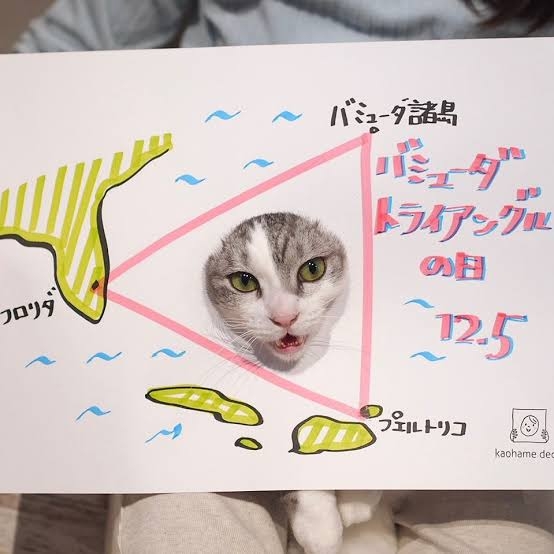 バミューダ諸島
バミューダ
トライアングル
の日
12.5
フロリダ
プエルトリコ
kaohame dec